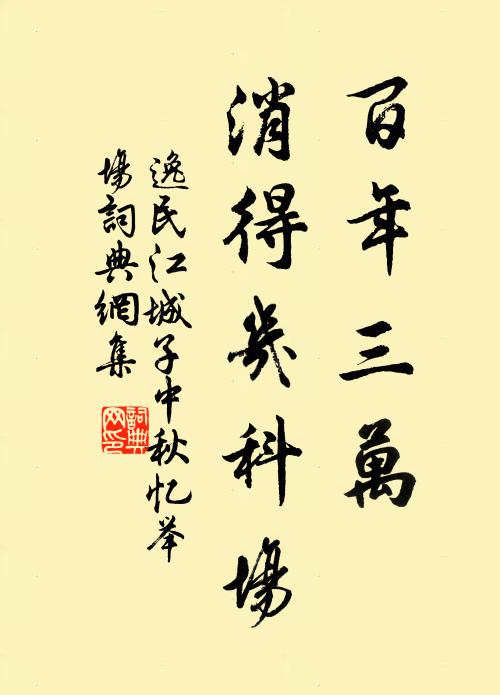 百年三萬
消得幾科場
逸民江城子中秋忆举
場詞典網集
詞典網印